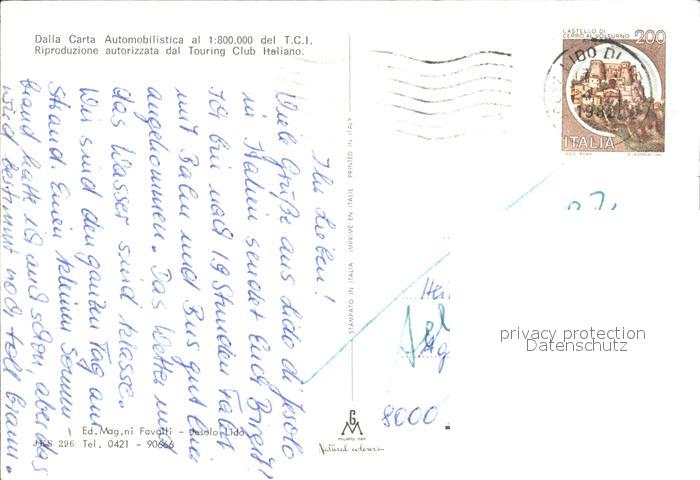 Dalla Carta Automobilistica al 1:800.000 del T.C.I.
Riproduzione autorizzata dal Touring Club Italiano.
Ihr Lieben!
Viele Grüße aus Lido di Jesolo
in Italien sendet Euch
Ich bin nach 19 Stunden Fahrt
mit Bahn und Bus gut hier
angekommen. Das Wetter und
das Wasser sind klasse.
Wir sind den ganzen Tag am
Strand. Einen kleinen Sonnen-
brand hatte ich auch schon, aber das
wird bestimmt noch toll braun.
Ed. Mag.ni Favotti - Jesolo Lido
JES 296 Tel. 0421 - 90666
STAMPATO IN ITALIA IMPRIMÉ EN ITALIE PRINTED IN ITALY
GM
Natural colours
CASTELLO DI
CERRO AL VOLTURNO
200
ITALIA
LIDO DI
8000
privacy protection
Datenschutz